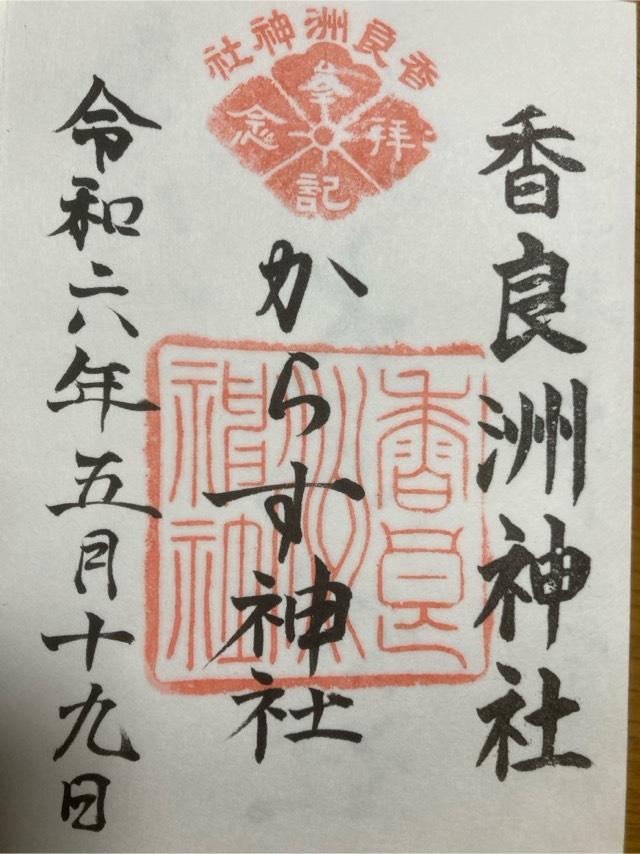 香良洲神社
香良洲神社
参拝記念
からす神社
香良洲神社
令和六年五月十九日